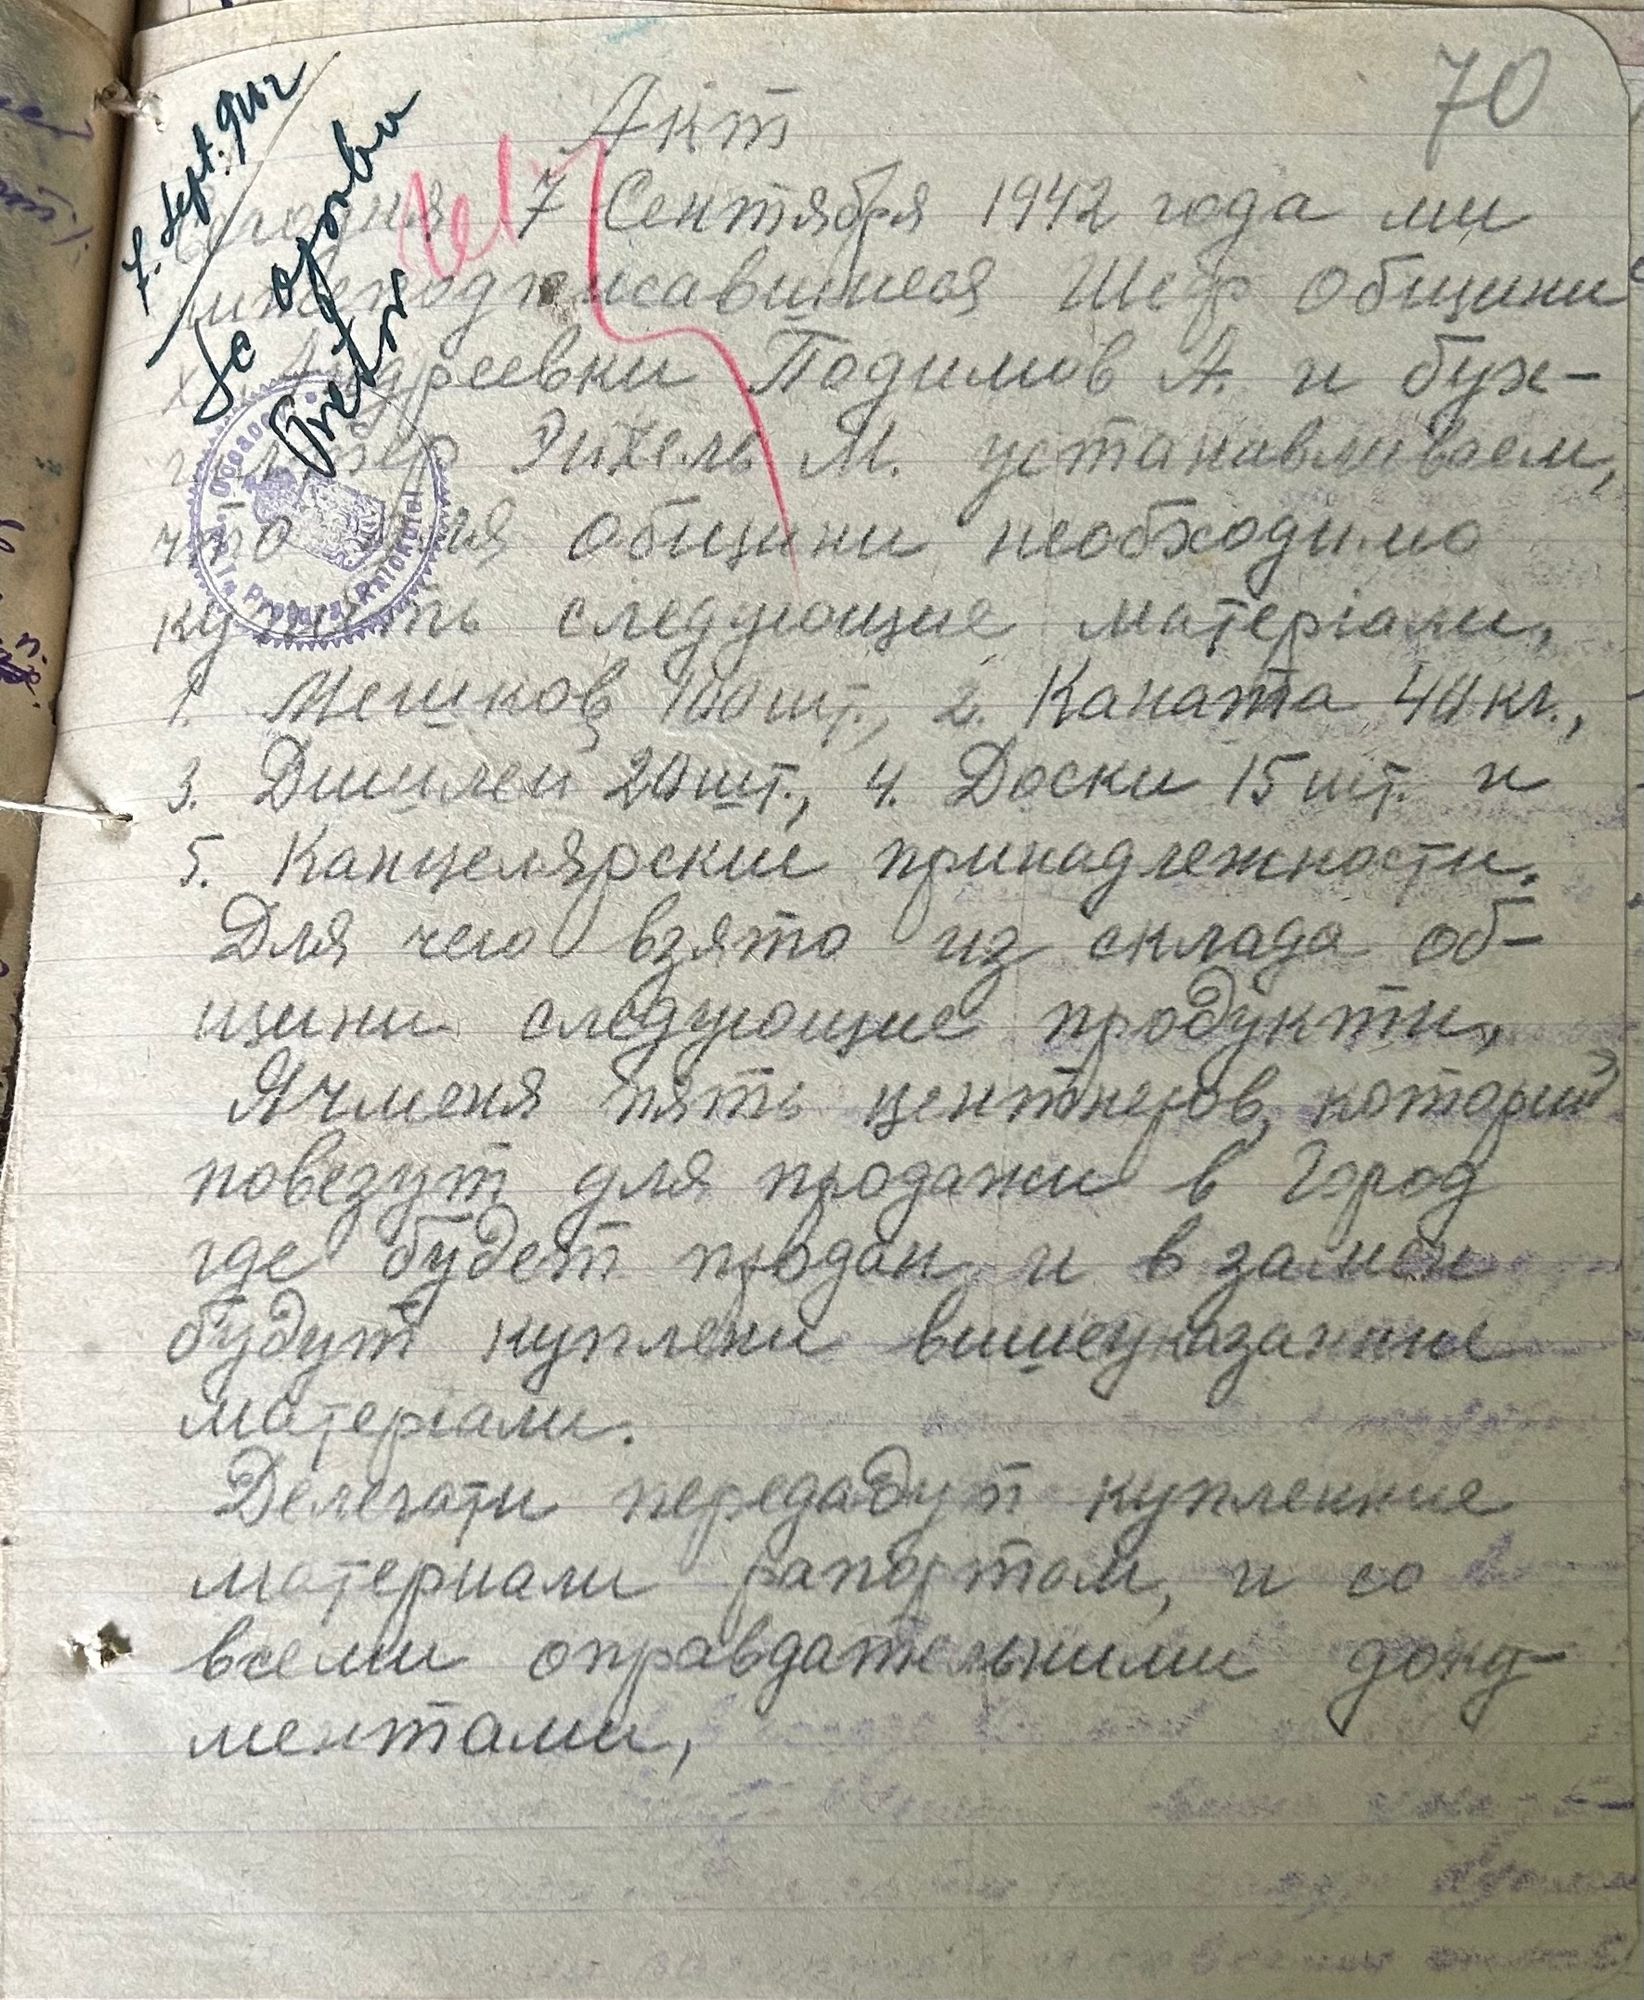 70
7. Sept. 942
Se aprobă
Акт
Сегодня 7 Сентября 1942 года ми
нижеподписавшиеся Шеф общини
х. Андреевки Подимов А. и бух-
галтер Эихель М. устанавливаем,
что для общини необходимо
купить следующие матеріали,
1. Мешков 100 шт., 2. Каната 40 кг.,
3. Дишлей 20 шт., 4. Доски 15 шт. и
5. Канцелярские принадлежности.
Для чего взято из склада об-
щини следующие продукти,
Ячменя пять центнеров, которий
повезут для продажи в Город
где будет продан и в замен
будут куплени вишеуказанние
матеріали.
Делегати передадут купленние
материали рапортом, и со
всеми оправдательними доку-
ментами,